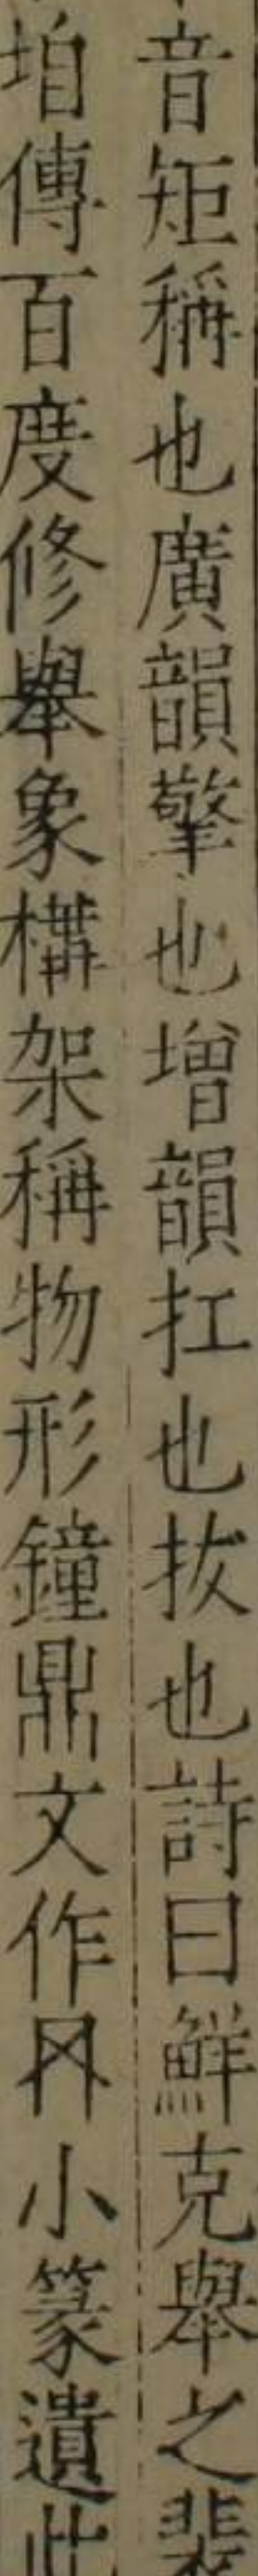 音矩稱也廣韻擎也增韻扛也㧞也詩曰鮮克舉之裴
垍傳百度修舉象構架稱物形鐘鼎文作冎小篆遺此